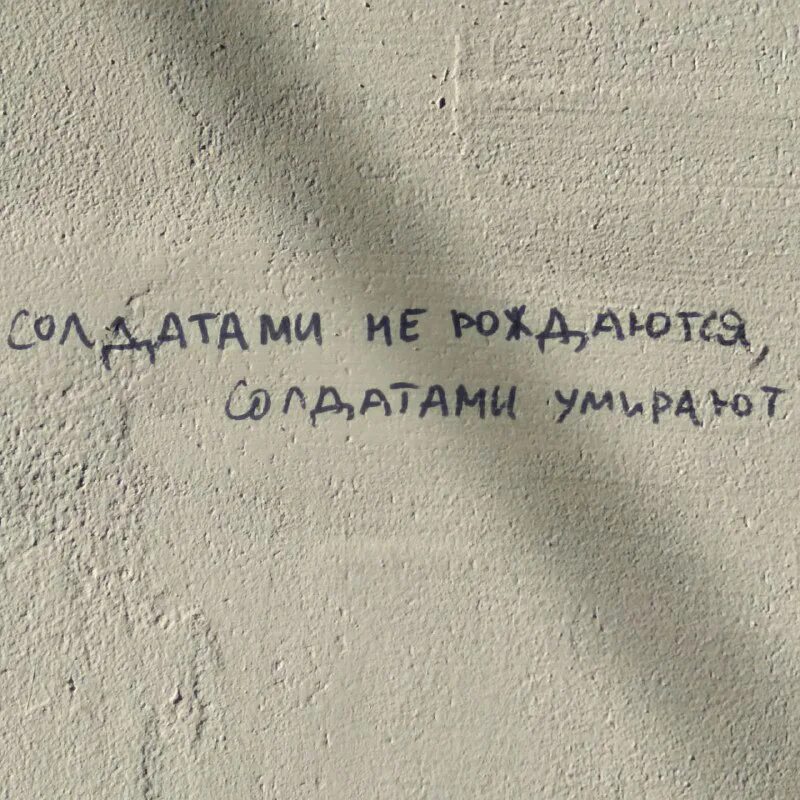 СОЛДАТАМИ НЕ РОЖДАЮТСЯ,
СОЛДАТАМИ УМИРАЮТ